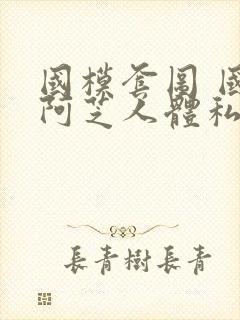 國模套圖 國
阿芝人體私
長青樹長青